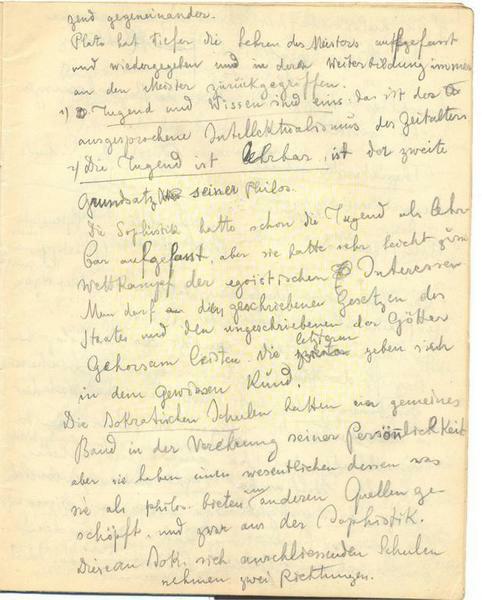 zend gegeneinander.
Plato hat tiefer die Lehren des Meisters aufgefasst
und wiedergegeben und in deren Weiterbildung immer
an den Meister zurückgegriffen.
1) Tugend und Wissen sind eins. das ist der
ausgesprochene Intellektualismus des Zeitalters
2) Die Tugend ist lehrbar, ist der zweite
Grundsatz seiner Philos.
Die Sophistik hatte schon die Tugend als lehr-
bar aufgefasst, aber sie hatte sehr leicht zum
Wettkampf der egoistischen Interessen
Man darf an den geschriebenen Gesetzen des
Staates und den ungeschriebenen der Götter
Gehorsam leisten. Die letzteren geben sich
in dem Gewissen Kund.
Die Sokratischen Schulen hatten nur gemeines
Band in der Verehrung seiner Persönlichkeit
aber sie haben einen wesentlichen dessen was
sie als philos. bieten anderen Quellen ge-
schöpft, und zwar aus der Sophistik.
Diese an Sok. sich anschliessenden Schulen
nehmen zwei Richtungen.